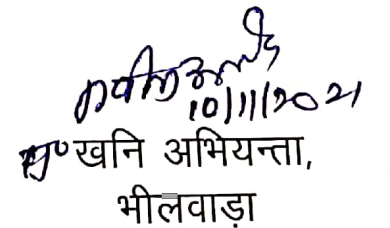 10/11/2021
खनि अभियन्ता,
भीलवाड़ा